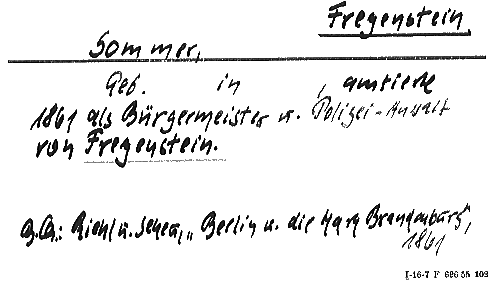 Fregenstein,
Sommer,
Geb. in , amtierte
1861 als Bürgermeister u. Polizei-Anwalt
von Fregenstein.
B.A.: Riehl u. Scheu, "Berlin u. die Mark Brandenburg",
1861
I-16-7 F 686 55 103